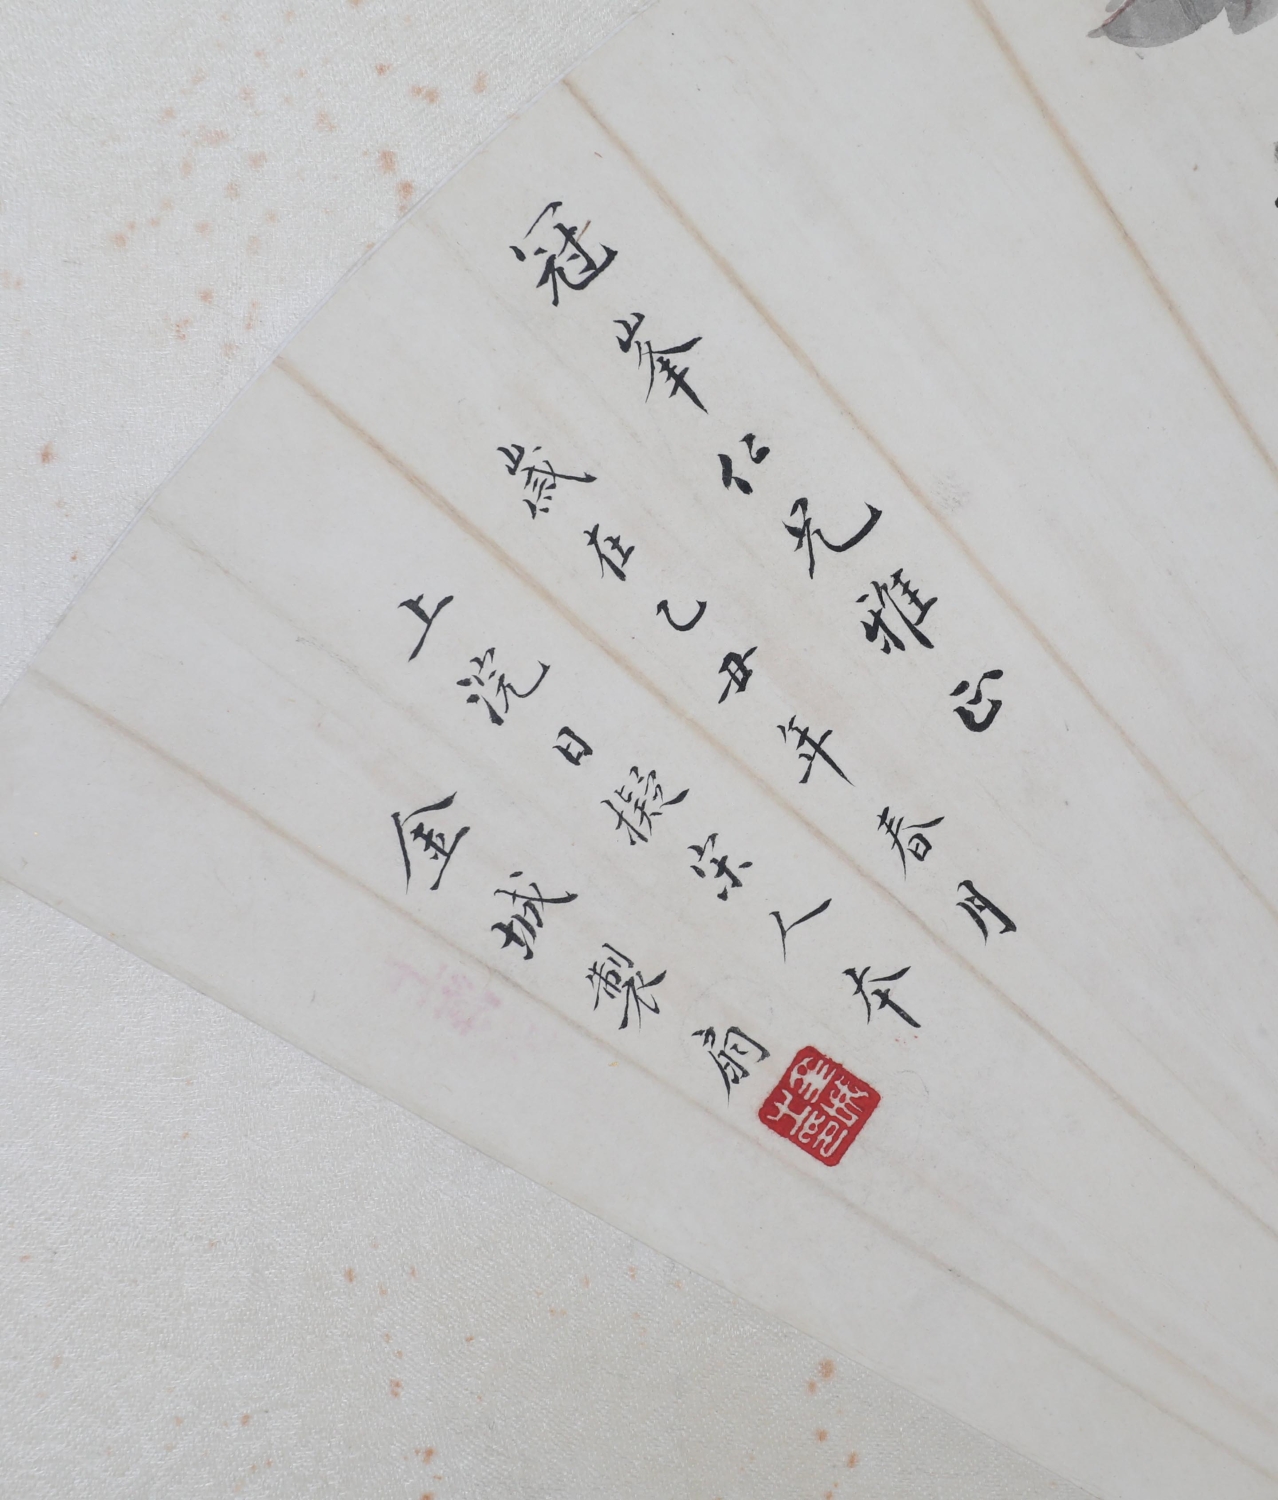 冠峯仁兄雅正
歲在乙丑年春月
上浣日撫宋人本
金城製扇
金城之鉩